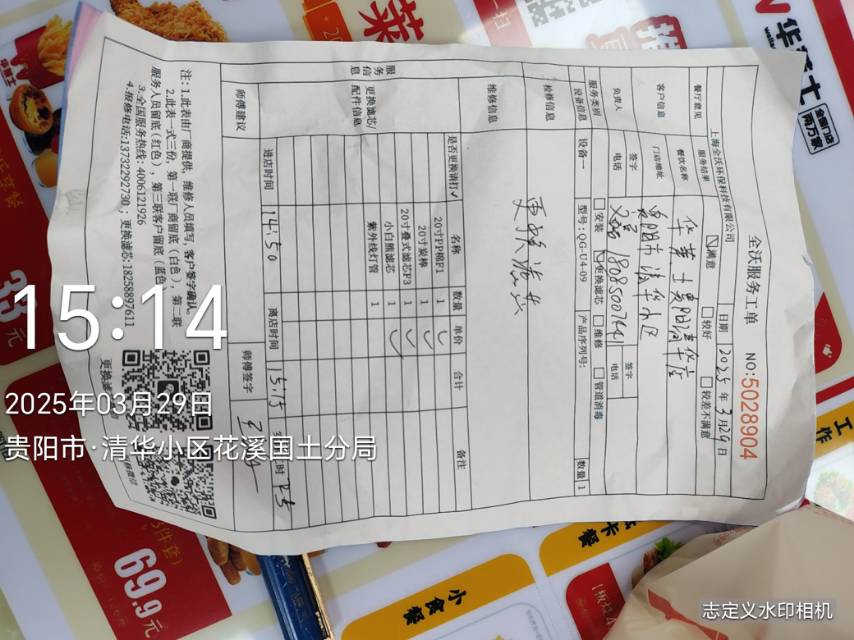 全沃服务工单
NO:5028904
上海全沃环保科技有限公司
日期 2025年3月29日
餐厅意见
服务结果
满意
较好
较差不满意
客户信息
餐饮名称
华莱士贵阳清华店
门店地址
贵阳市清华小区
负责人
签字
电话
签字
电话
服务类别
安装
更换滤芯
维修
管道消毒
设备信息
设备一
型号:QG-U4-09
产品序列号:
数量 1
检修信息
更换滤芯
维修信息
服务信息
更换滤芯/配件信息
是否更换请打√
名称
数量
单价
合计
备注
20寸PP棉F1
1
20寸炭棒
1
20寸叠式滤芯F3
1
小白熊滤芯
1
紫外线灯管
1
师傅建议
进店时间
14:50
离店时间
15:15
师傅签字
注:1.此表由厂商提供,维修人员填写,客户签字确认。
2.此表一式三份,第一联厂商留底(白色),第二联
服务人员留底(红色),第三联客户留底(蓝色
3.全国服务热线:4006121926
4.报修电话:13732292730;更换滤芯:18258897611
15:14
2025年03月29日
贵阳市·清华小区花溪国土分局
志定义水印相机
华莱士
全国门店
两万家
小食餐
工作
69.9元
33元